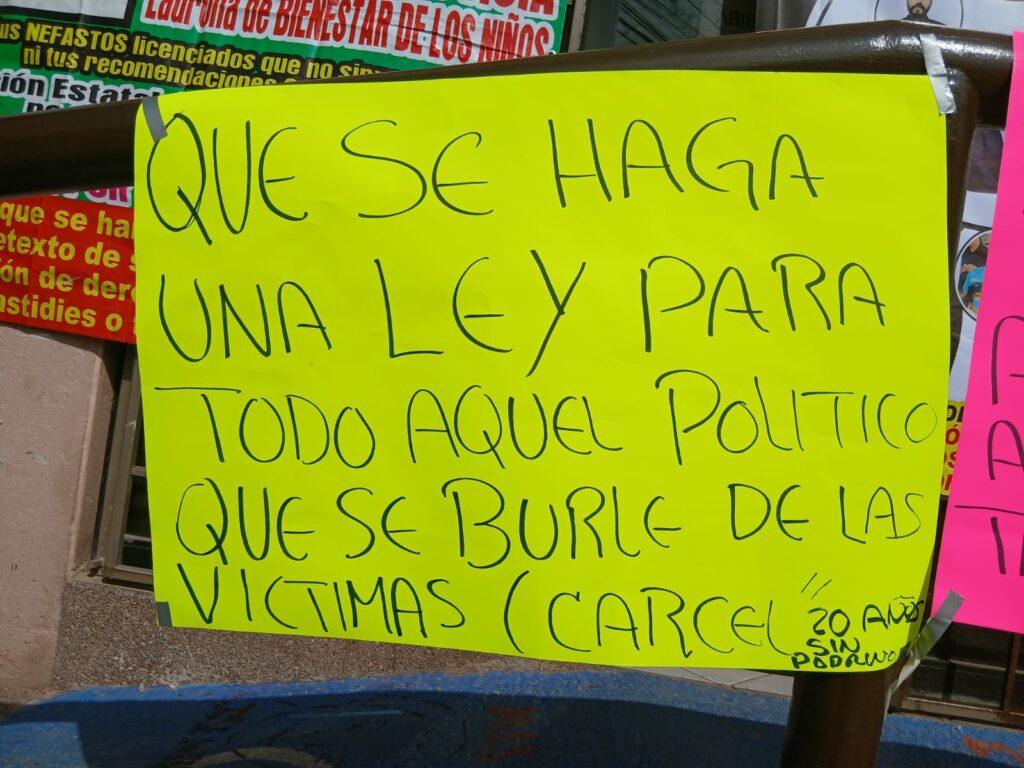 Ladrona de BIENESTAR DE LOS NIÑOS
us NEFASTOS licenciados que no
ni tus recomendaciones
ión Estatal
que se ha
etexto de
ón de der
astidies o
QUE SE HAGA
UNA LEY PARA
TODO AQUEL POLITICO
QUE SE BURLE DE LAS
VICTIMAS (CARCEL "20 AÑOS
SIN
PODRINO